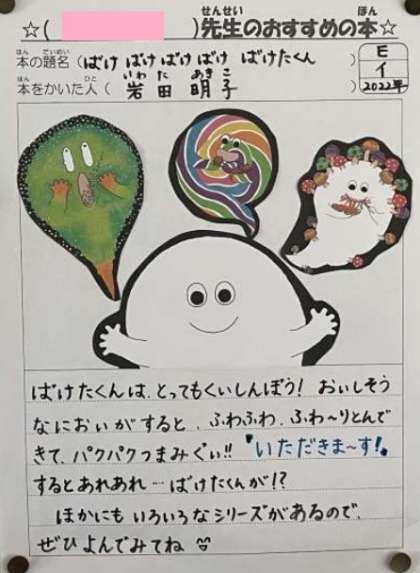 せんせい ほん
☆( )先生のおすすめの本☆
ほん だいめい
本の題名(ばけ ばけばけばけ ばけたくん )
E
イ
2022年
ほん ひと いわ た あき こ
本をかいた人( 岩田 明子 )
ばけたくんは、とってもくいしんぼう! おいしそう
なにおいがすると、ふわふわ、ふわ〜りとんで
きて、パクパクつまみぐい!!『いただきま〜す!』
するとあれあれ…ばけたくんが!?
ほかにもいろいろなシリーズがあるので、
ぜひよんでみてね